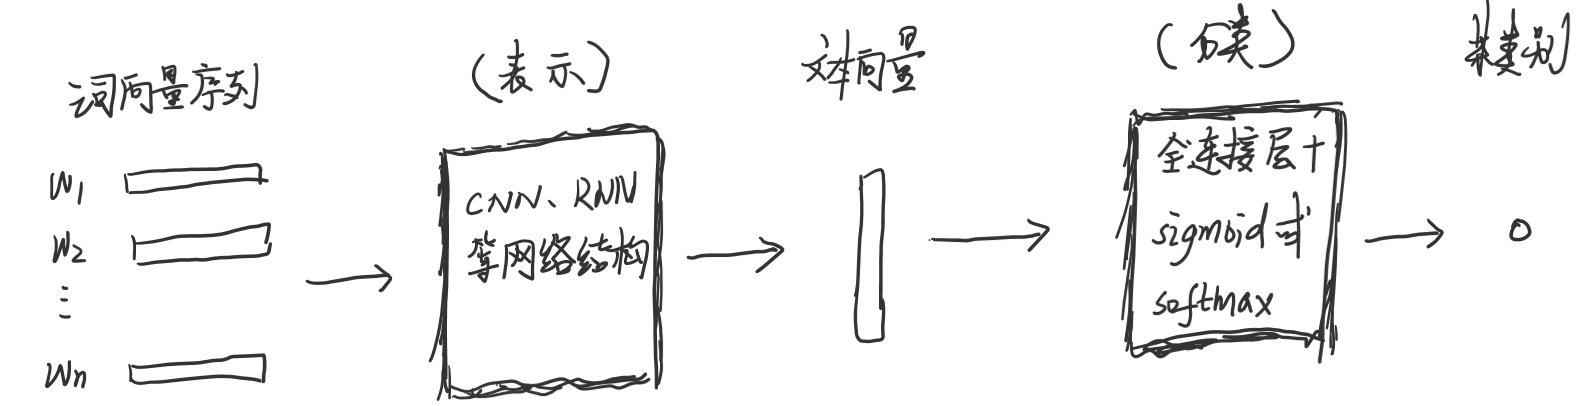 词向量序列
w1
w2
⋮
wn
(表示)
CNN、RNN
等网络结构
文本向量
(分类)
全连接层+
sigmoid或
softmax
某类别